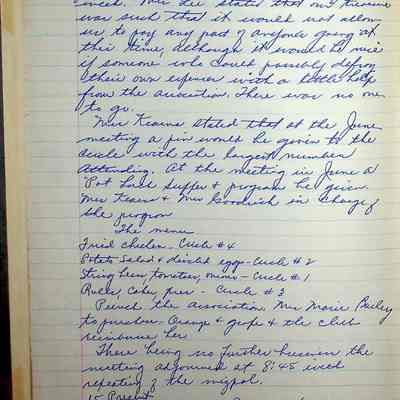 Mrs Lee stated that our treasure
was such that it would not allow
us to pay any part of anyone going at
this time, although it would be nice
if someone who could possibly defray
their own expense with a little help
from the association. There was no one
to go.
Mrs Kearns stated that at the June
meeting a pin would be given to the
circle with the largest number
attending. At the meeting in June a
Pot Luck Supper & program be given.
Mrs Kearns & Mrs Goodrich in charge of
the program
The menu
Fried chicken - Circle #4
Potato Salad & deviled eggs - Circle #2
String bean, tomatoes, onions - Circle #1
Rolls, Cake, pies - Circle #3
Punch the association. Mrs Marie Bailey
to purchase Orange & grape & the club
reimburse her.
There being no further business the
meeting adjourned at 8:45 with
repeating of the mizpah.
15 Present